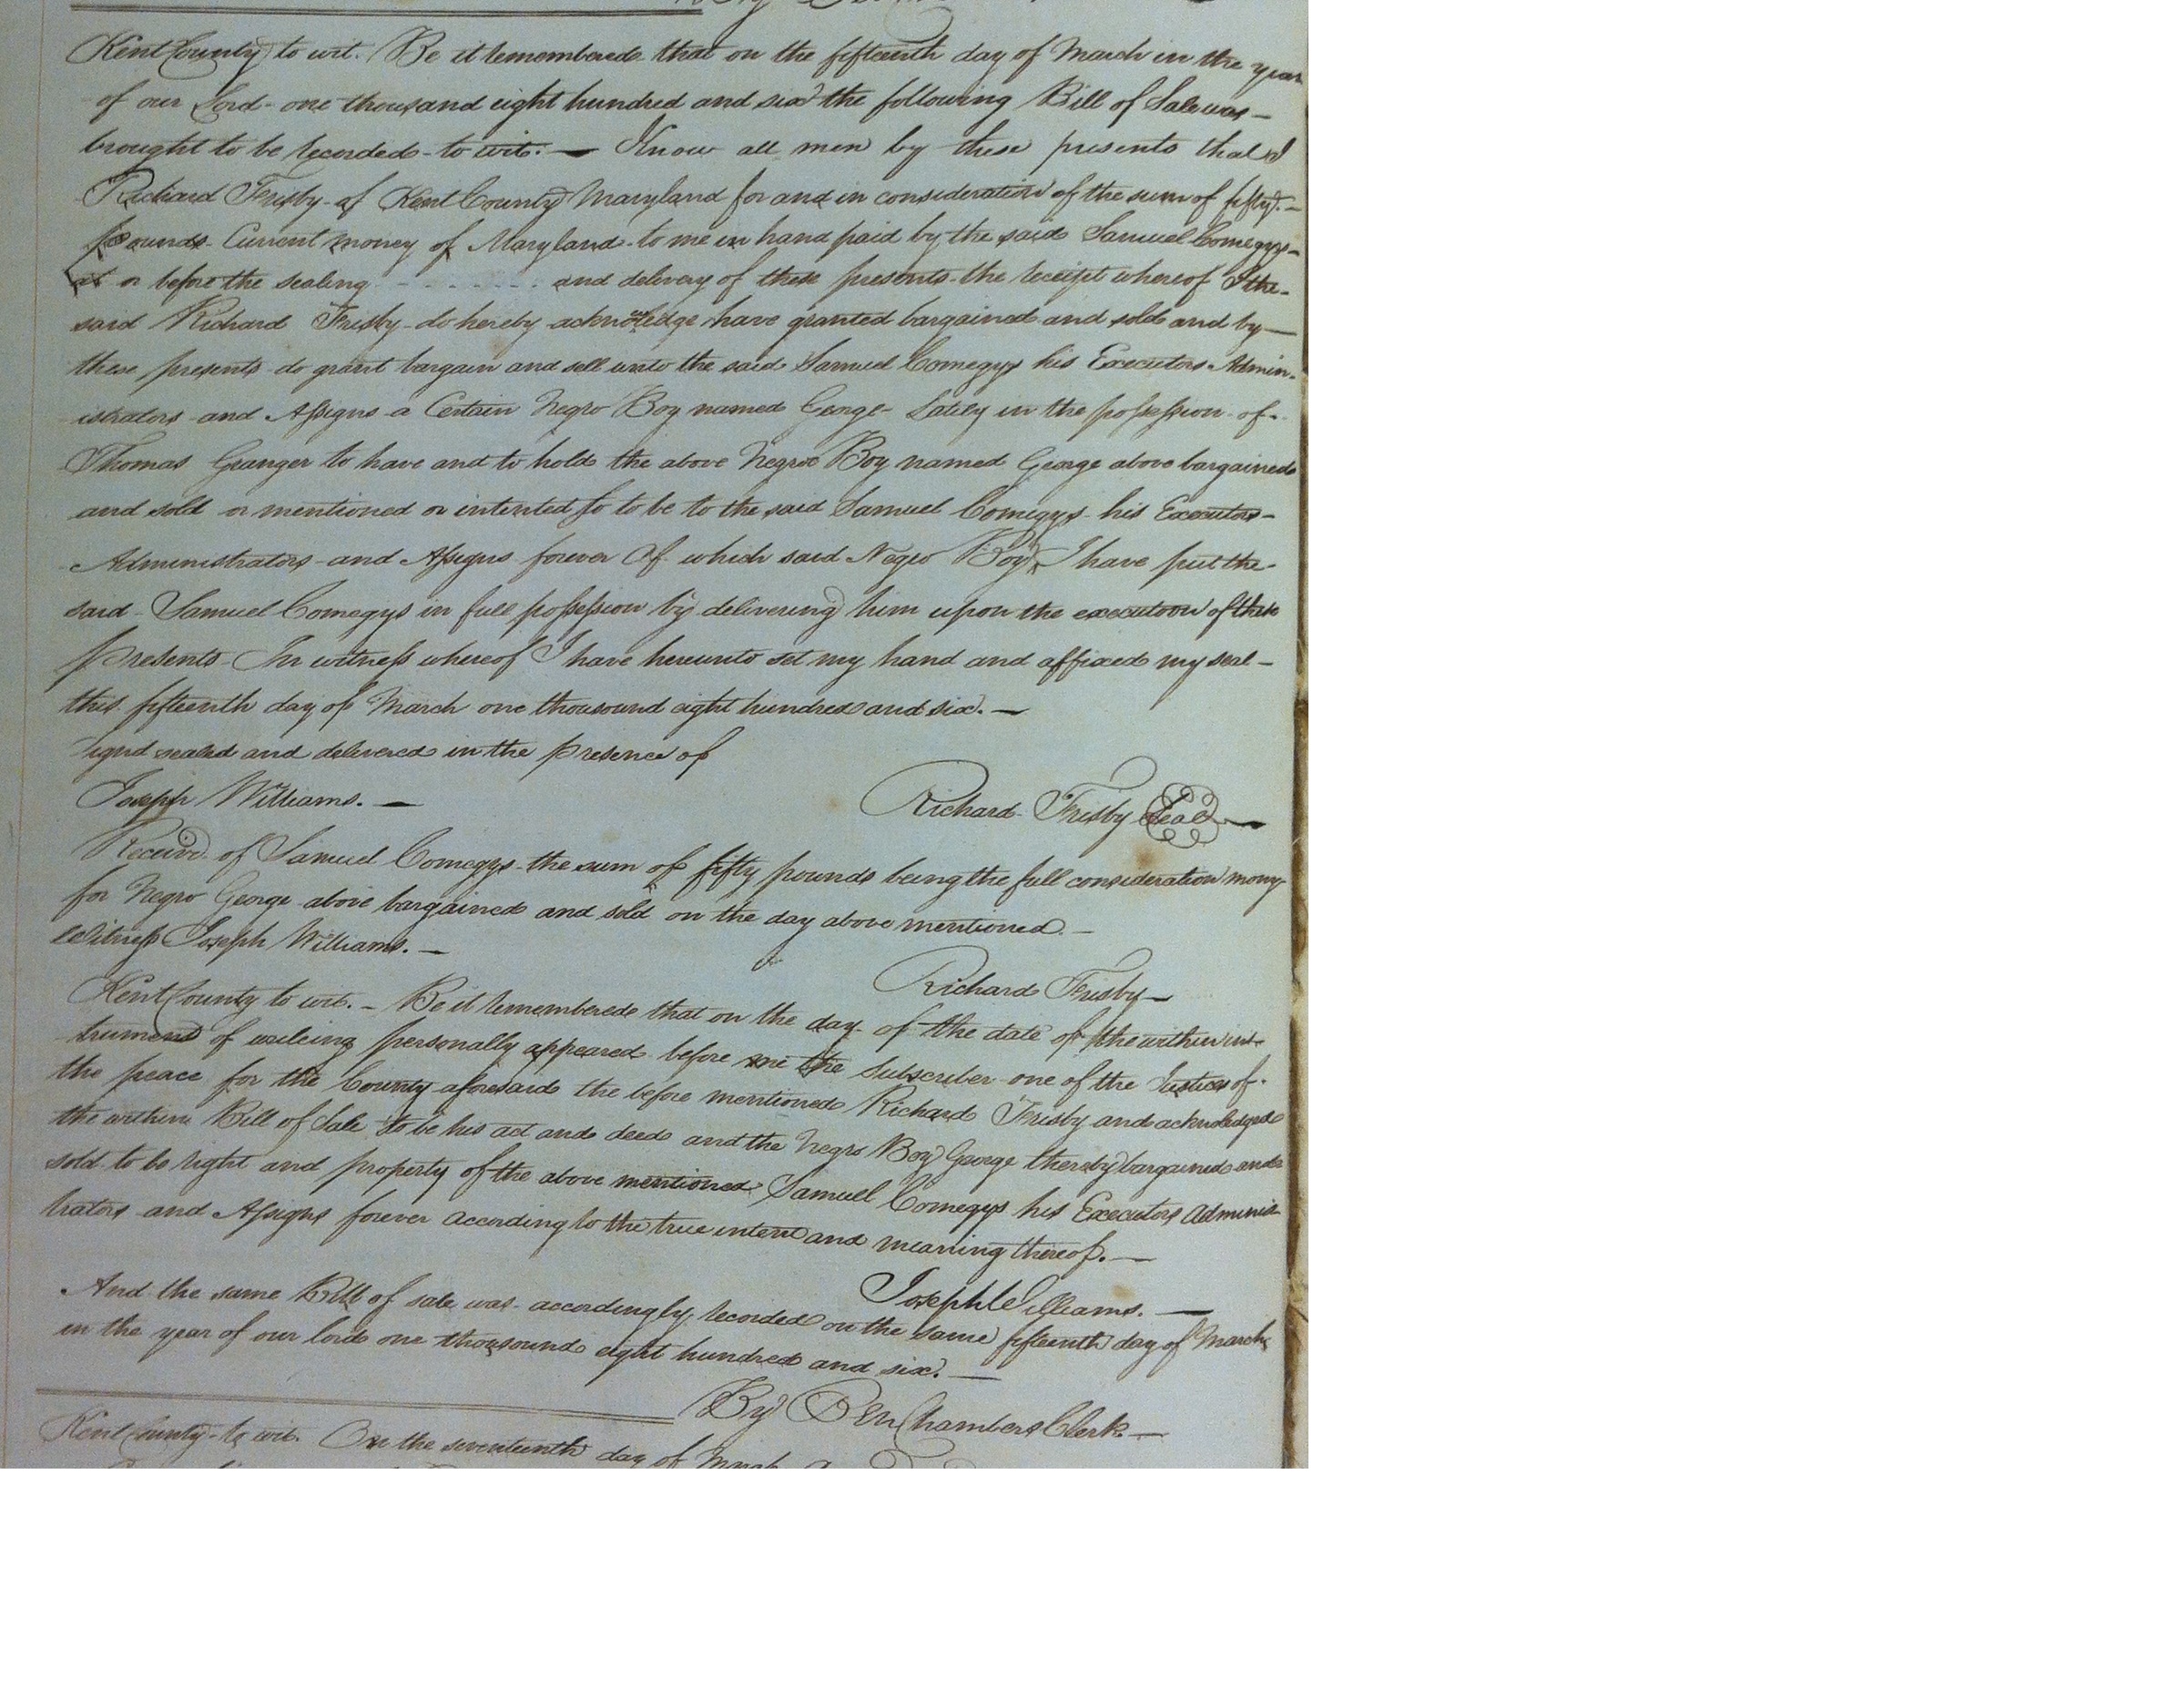 Kent County to wit. Be it remembered that on the fifteenth day of March in the year
of our Lord one thousand eight hundred and six the following Bill of Sale was —
brought to be recorded to wit. — Know all men by these presents that I
Richard Frisby of Kent County Maryland for and in consideration of the sum of fifty. —
pounds Current money of Maryland to me in hand paid by the said Samuel Comegys —
at or before the sealing - - - - - - - and delivery of these presents the receipt whereof I the -
said Richard Frisby do hereby acknowledge have granted bargained and sold and by —
these presents do grant bargain and sell unto the said Samuel Comegys his Executors Admin-
istrators and Assigns a Certain Negro Boy named George Lately in the possession of -
Thomas Granger to have and to hold the above Negroe Boy named George above bargained
and sold or mentioned or intented so to be to the said Samuel Comegys his Executors -
Administrators and Assigns forever Of which said Negro Boy I have put the
said Samuel Comegys in full possession by delivering him upon the execution of these
presents In witness whereof I have hereunto set my hand and affixed my seal —
this fifteenth day of March one thousound eight hundred and six. —
signd sealed and delivered in the presence of
Joseph Williams. —
Richard Frisby Seal —
Receivd of Samuel Comegys the sum of fifty pounds being the full consideration mony
for Negro George above bargained and sold on the day above mentioned. —
Witness Joseph Williams. —
Richard Frisby —
Kent County to wit. — Be it remembered that on the day of the date of the within ins-
trument of writeing personally appeared before me the Subscriber one of the Justices of -
the peace for the County aforesaid the before mentioned Richard Frisby and acknoledged
the within Bill of Sale to be his act and deed and the Negro Boy George thereby bargained and
sold to be right and property of the above mentioned Samuel Comegys his Executors Adminis
trators and Assigns forever according to the true intent and meaning thereof. —
Joseph Williams. —
And the same Bill of sale was accordingly recorded on the same fifteenth day of March
in the year of our lord one thousound eight hundred and six. —
By Ben Chambers Clerk —
Kent County to wit. On the seventeenth day of March